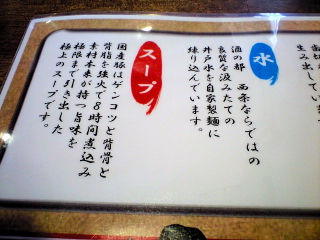 生み出してい
水
酒の都 西条ならではの
良質な汲みたての
井戸水を自家製麺に
練り込んでいます。
スープ
国産豚はゲンコツと背骨と
背脂を強火で8時間煮込み
素材本来が持つ旨味を
極限まで引き出した
極上のスープです。